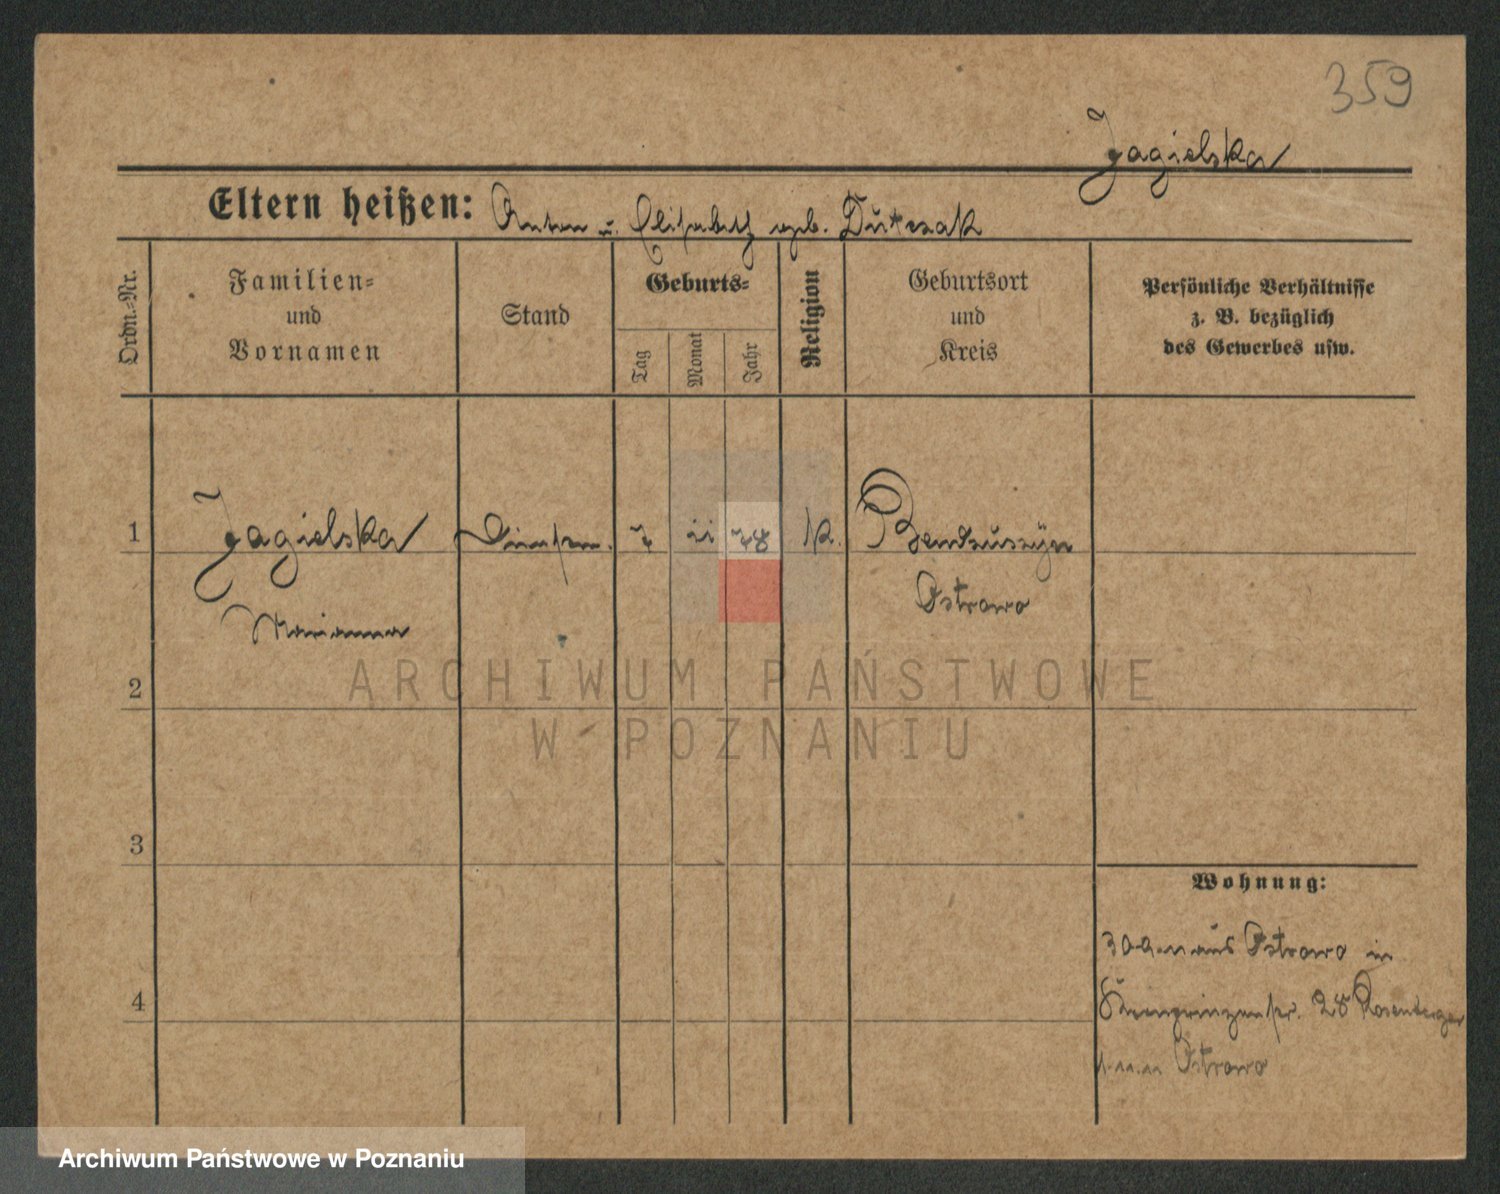 359
Jagielska
Eltern heißen: Anton u. Elisabeth geb. Dutczak
Ordn.-Nr.
Familien-
und
Vornamen
Stand
Geburts-
Tag
Monat
Jahr
Religion
Geburtsort
und
Kreis
Persönliche Verhältnisse
z. B. bezüglich
des Gewerbes usw.
1 Jagielska 7 11 78 K.
Marianna
Ostrowo
2
3
4
Wohnung:
aus Ostrowo in
Kronprinzenstr. 28 Rosenberger
Ostrowo
ARCHIWUM PAŃSTWOWE
W POZNANIU
Archiwum Państwowe w Poznaniu